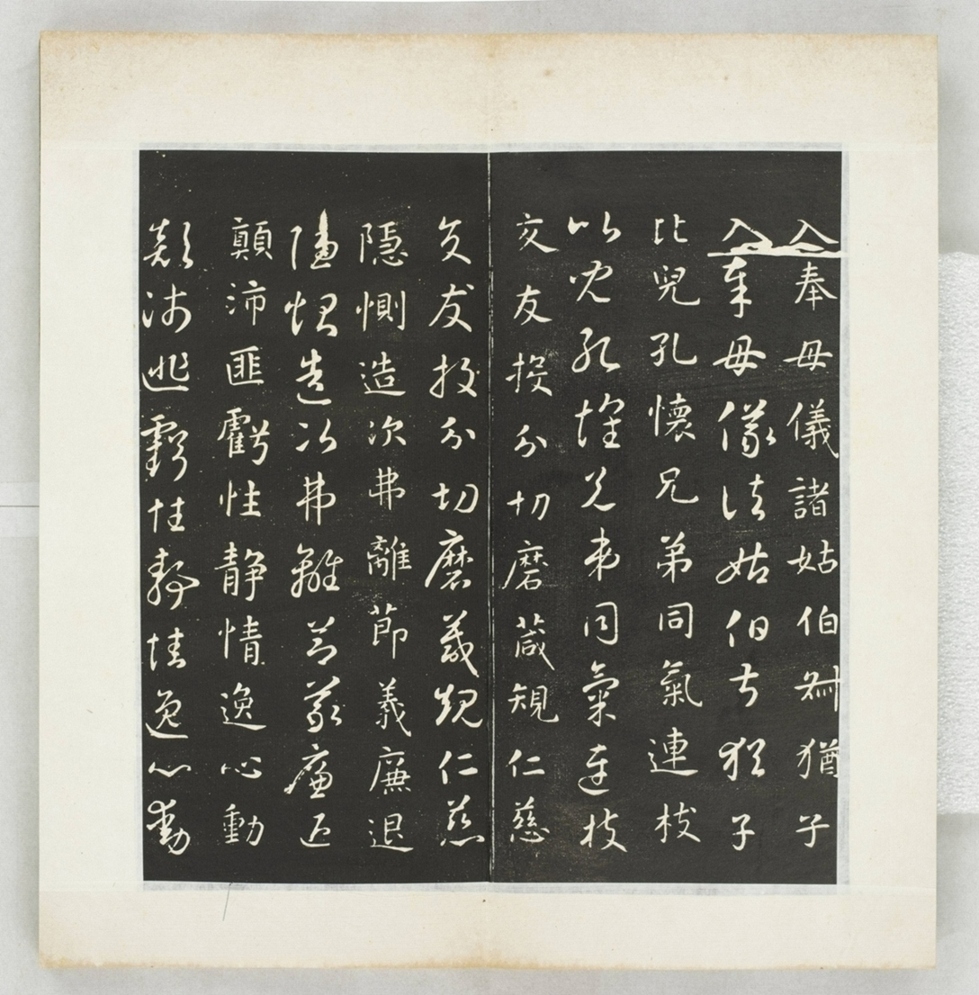 入奉母儀諸姑伯叔猶子
入奉母儀諸姑伯叔猶子
比兒孔懷兄弟同氣連枝
比兒孔懷兄弟同氣連枝
交友投分切磨箴規仁慈
交友投分切磨箴規仁慈
隱惻造次弗離節義廉退
隱惻造次弗離節義廉退
顛沛匪虧性静情逸心動
顛沛匪虧性静情逸心動